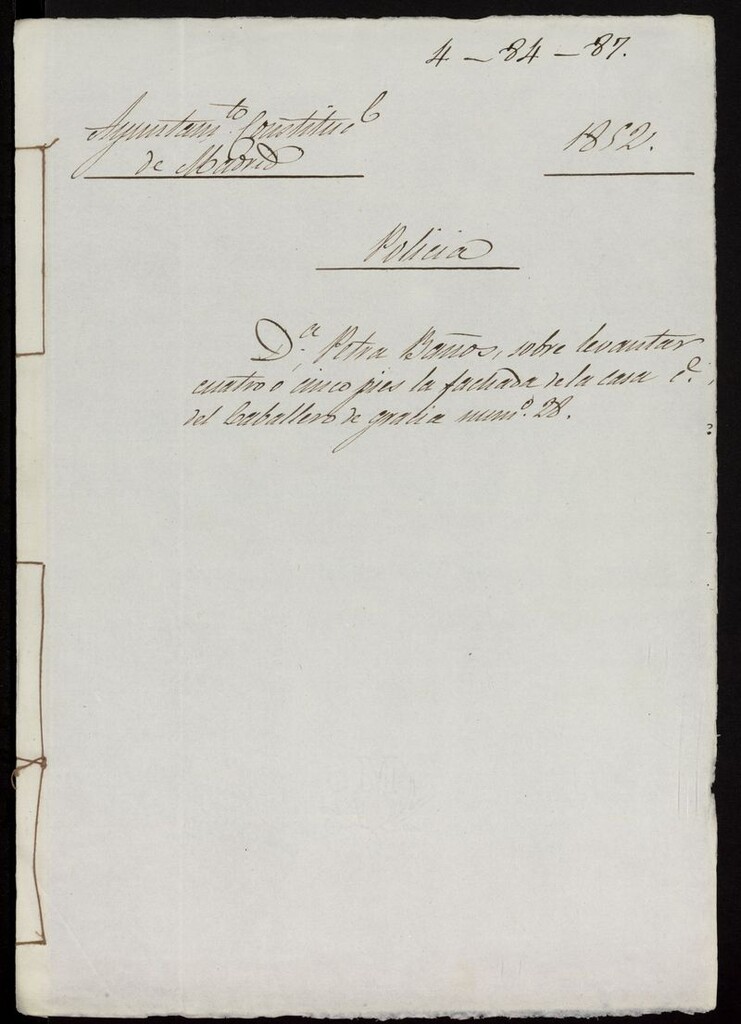 4 – 84 – 87.
Ayuntam.to Constituc.l
de Madrid
1852.
Policia
D.a Petra Baños, sobre levantar
cuatro o cinco pies la fachada de la casa c.
del Caballero de gracia num.o 28.